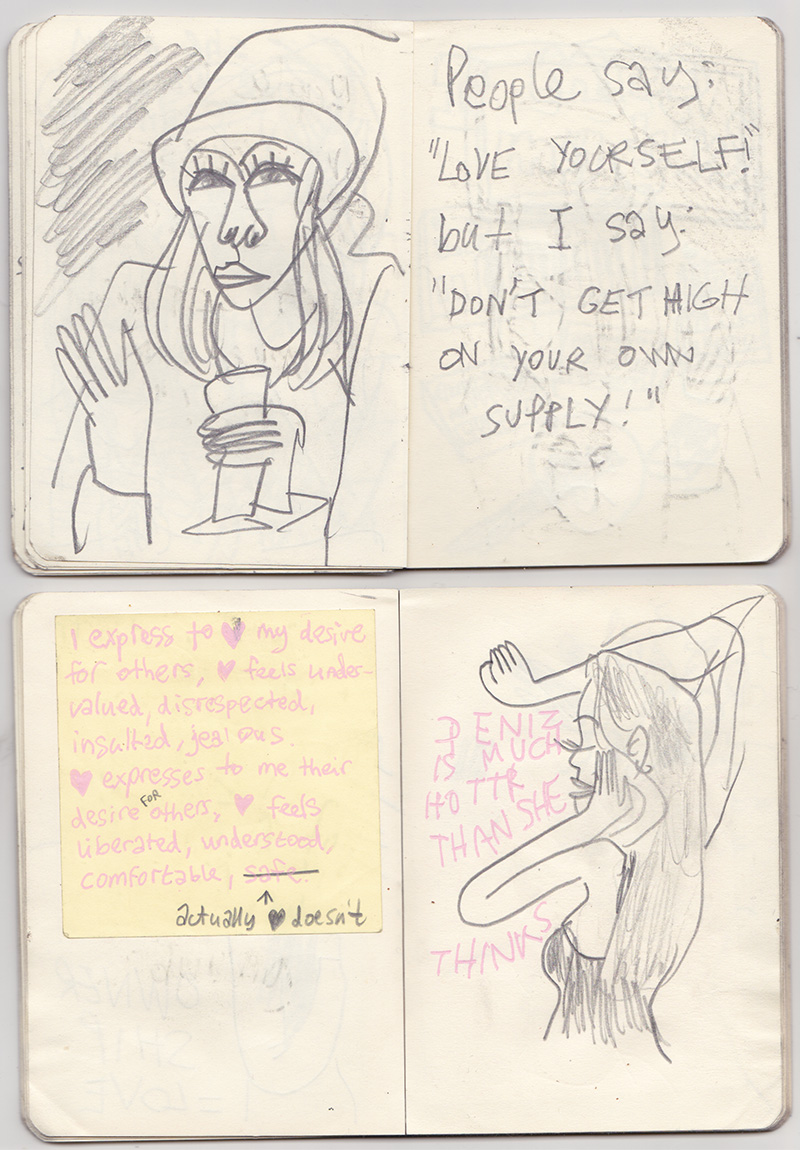 People say:
"LOVE YOURSELF!"
but I say:
"DON'T GET HIGH
ON YOUR OWN
SUPPLY!"
I express to ♥ my desire
for others, ♥ feels under-
valued, disrespected,
insulted, jealous.
♥ expresses to me their
desire FOR others, ♥ feels
liberated, understood,
comfortable, safe.
actually ♥ doesn't
DENIZ
IS MUCH
HOTTR
THAN SHE
THINKS